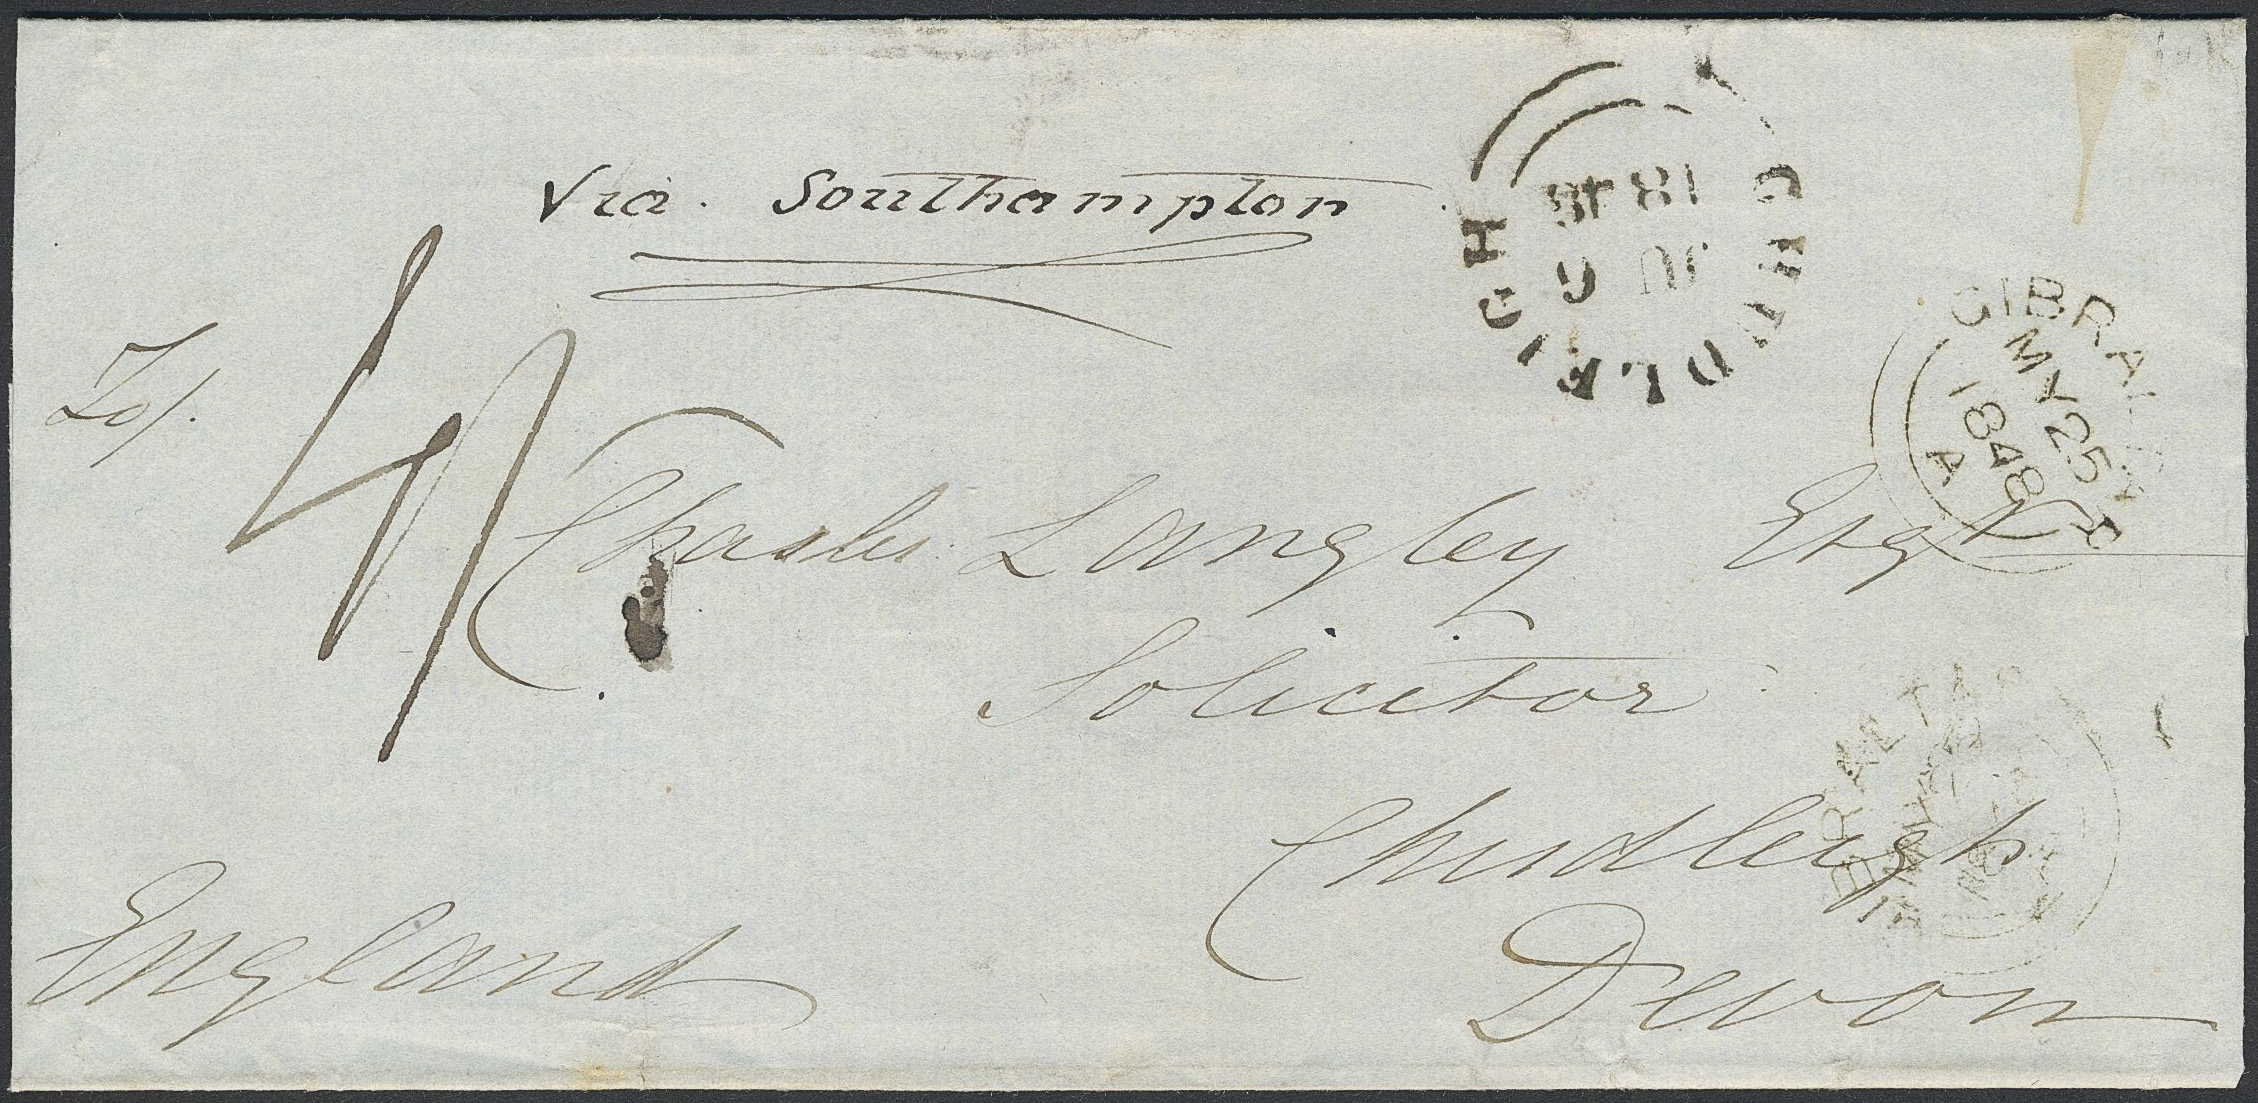 Via Southampton
CHUDLEIGH
JU 9
1848
GIBRALTAR
MY 25
1848
A
4/
Charles Langley Esqr
Solicitor
Chudleigh
Devon
England